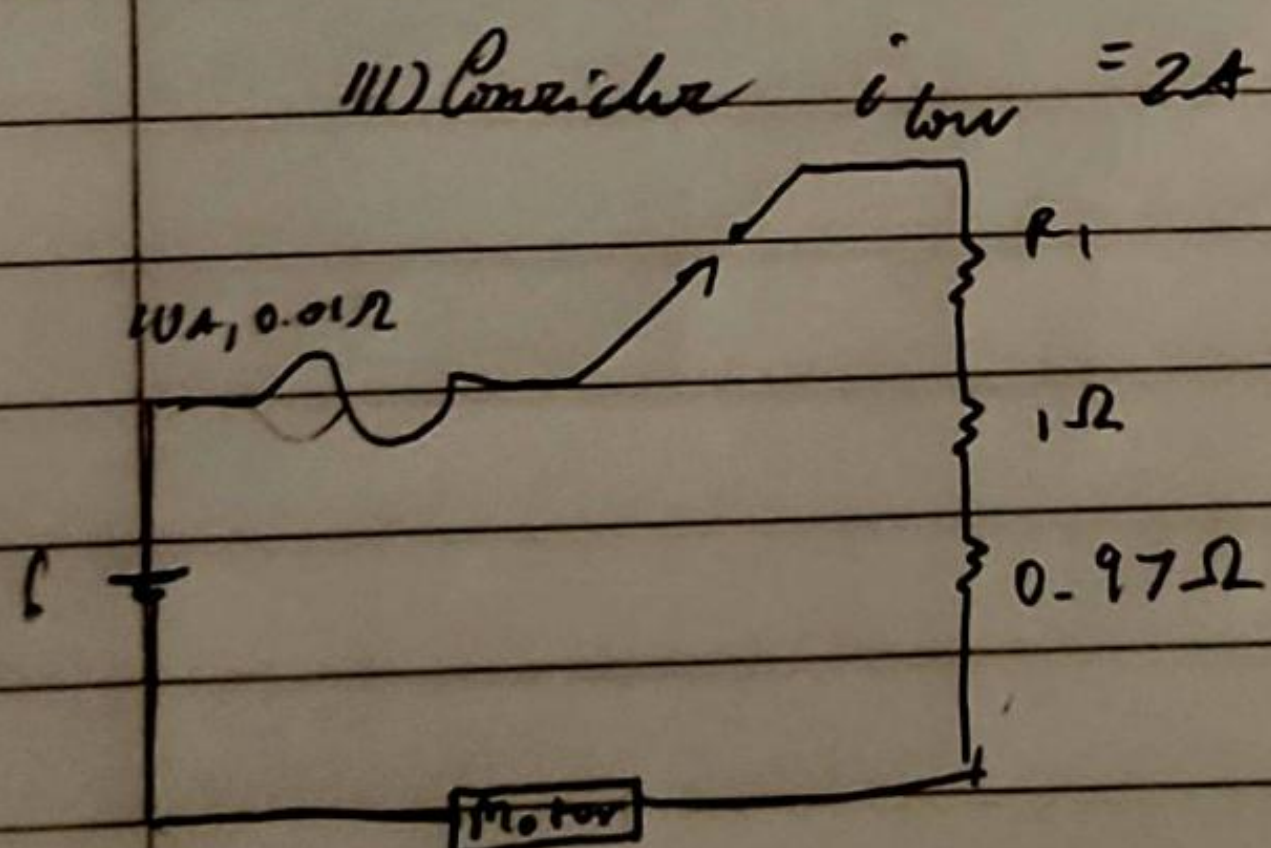 III) Consider i low = 2A
R1
10A, 0.01Ω
1Ω
0.97Ω
Motor